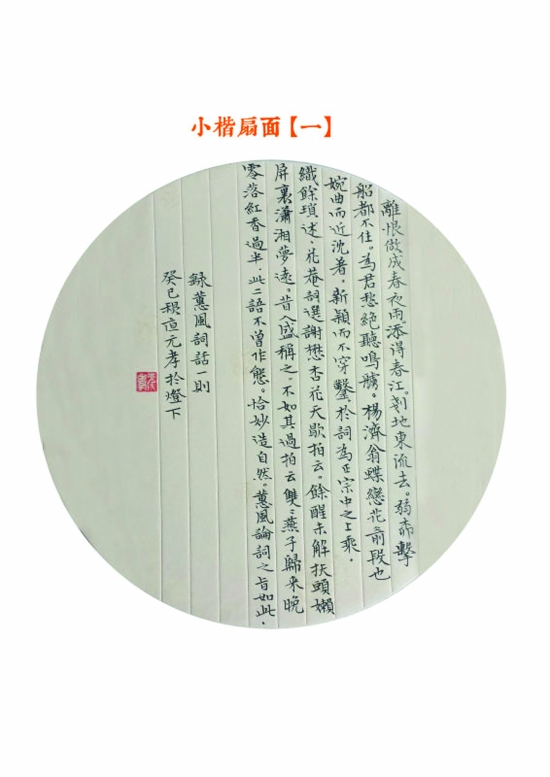 小楷扇面【一】
離恨做成春夜雨添得春江。剗地東流去。弱柳繫
船都不住。為君愁絕聽鳴艣。楊濟翁蝶戀花前段也
婉曲而近沈著。新穎而不穿鑿。於詞為正宗中之上乘。
織餘瑣述。花菴詞選謝懋杏花天歇拍云。餘醒未解扶頭嬾
屏裏瀟湘夢遠。昔人盛稱之。不如其過拍云雙〻燕子歸來晚
零落紅香過半。此二語不曾作態。恰妙造自然。蕙風論詞之旨如此。
録蕙風詞話一則
癸巳穆亘元孝於燈下